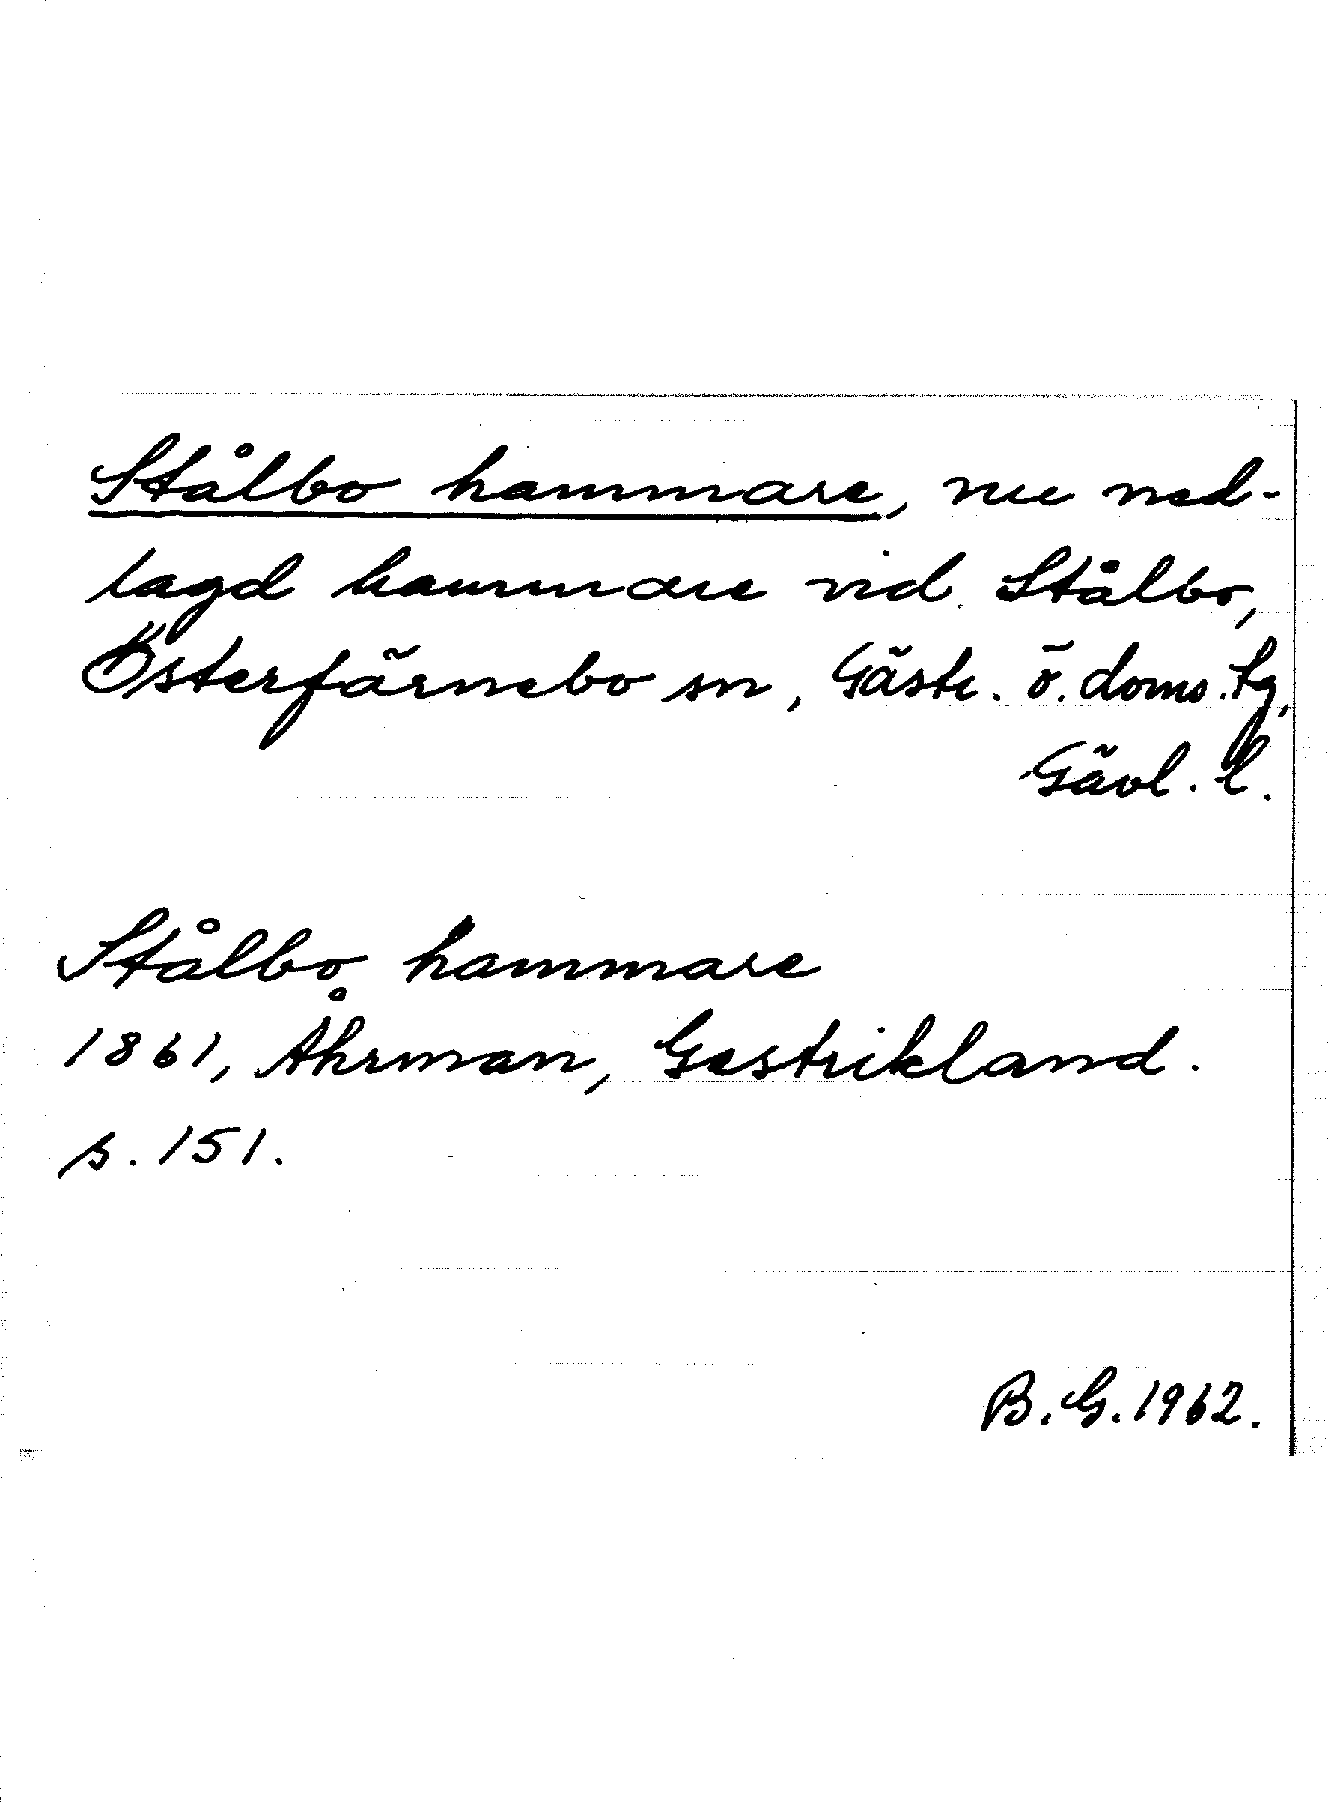 Stålbo hammare, nu ned-
lagd hammare vid Stålbo,
Österfärnebo sn, Gästr. ö. doms. tg,
Gävl. l.
Stålbo hammare
1861, Åhrman, Gestrikland.
s. 151.
B. G. 1962.